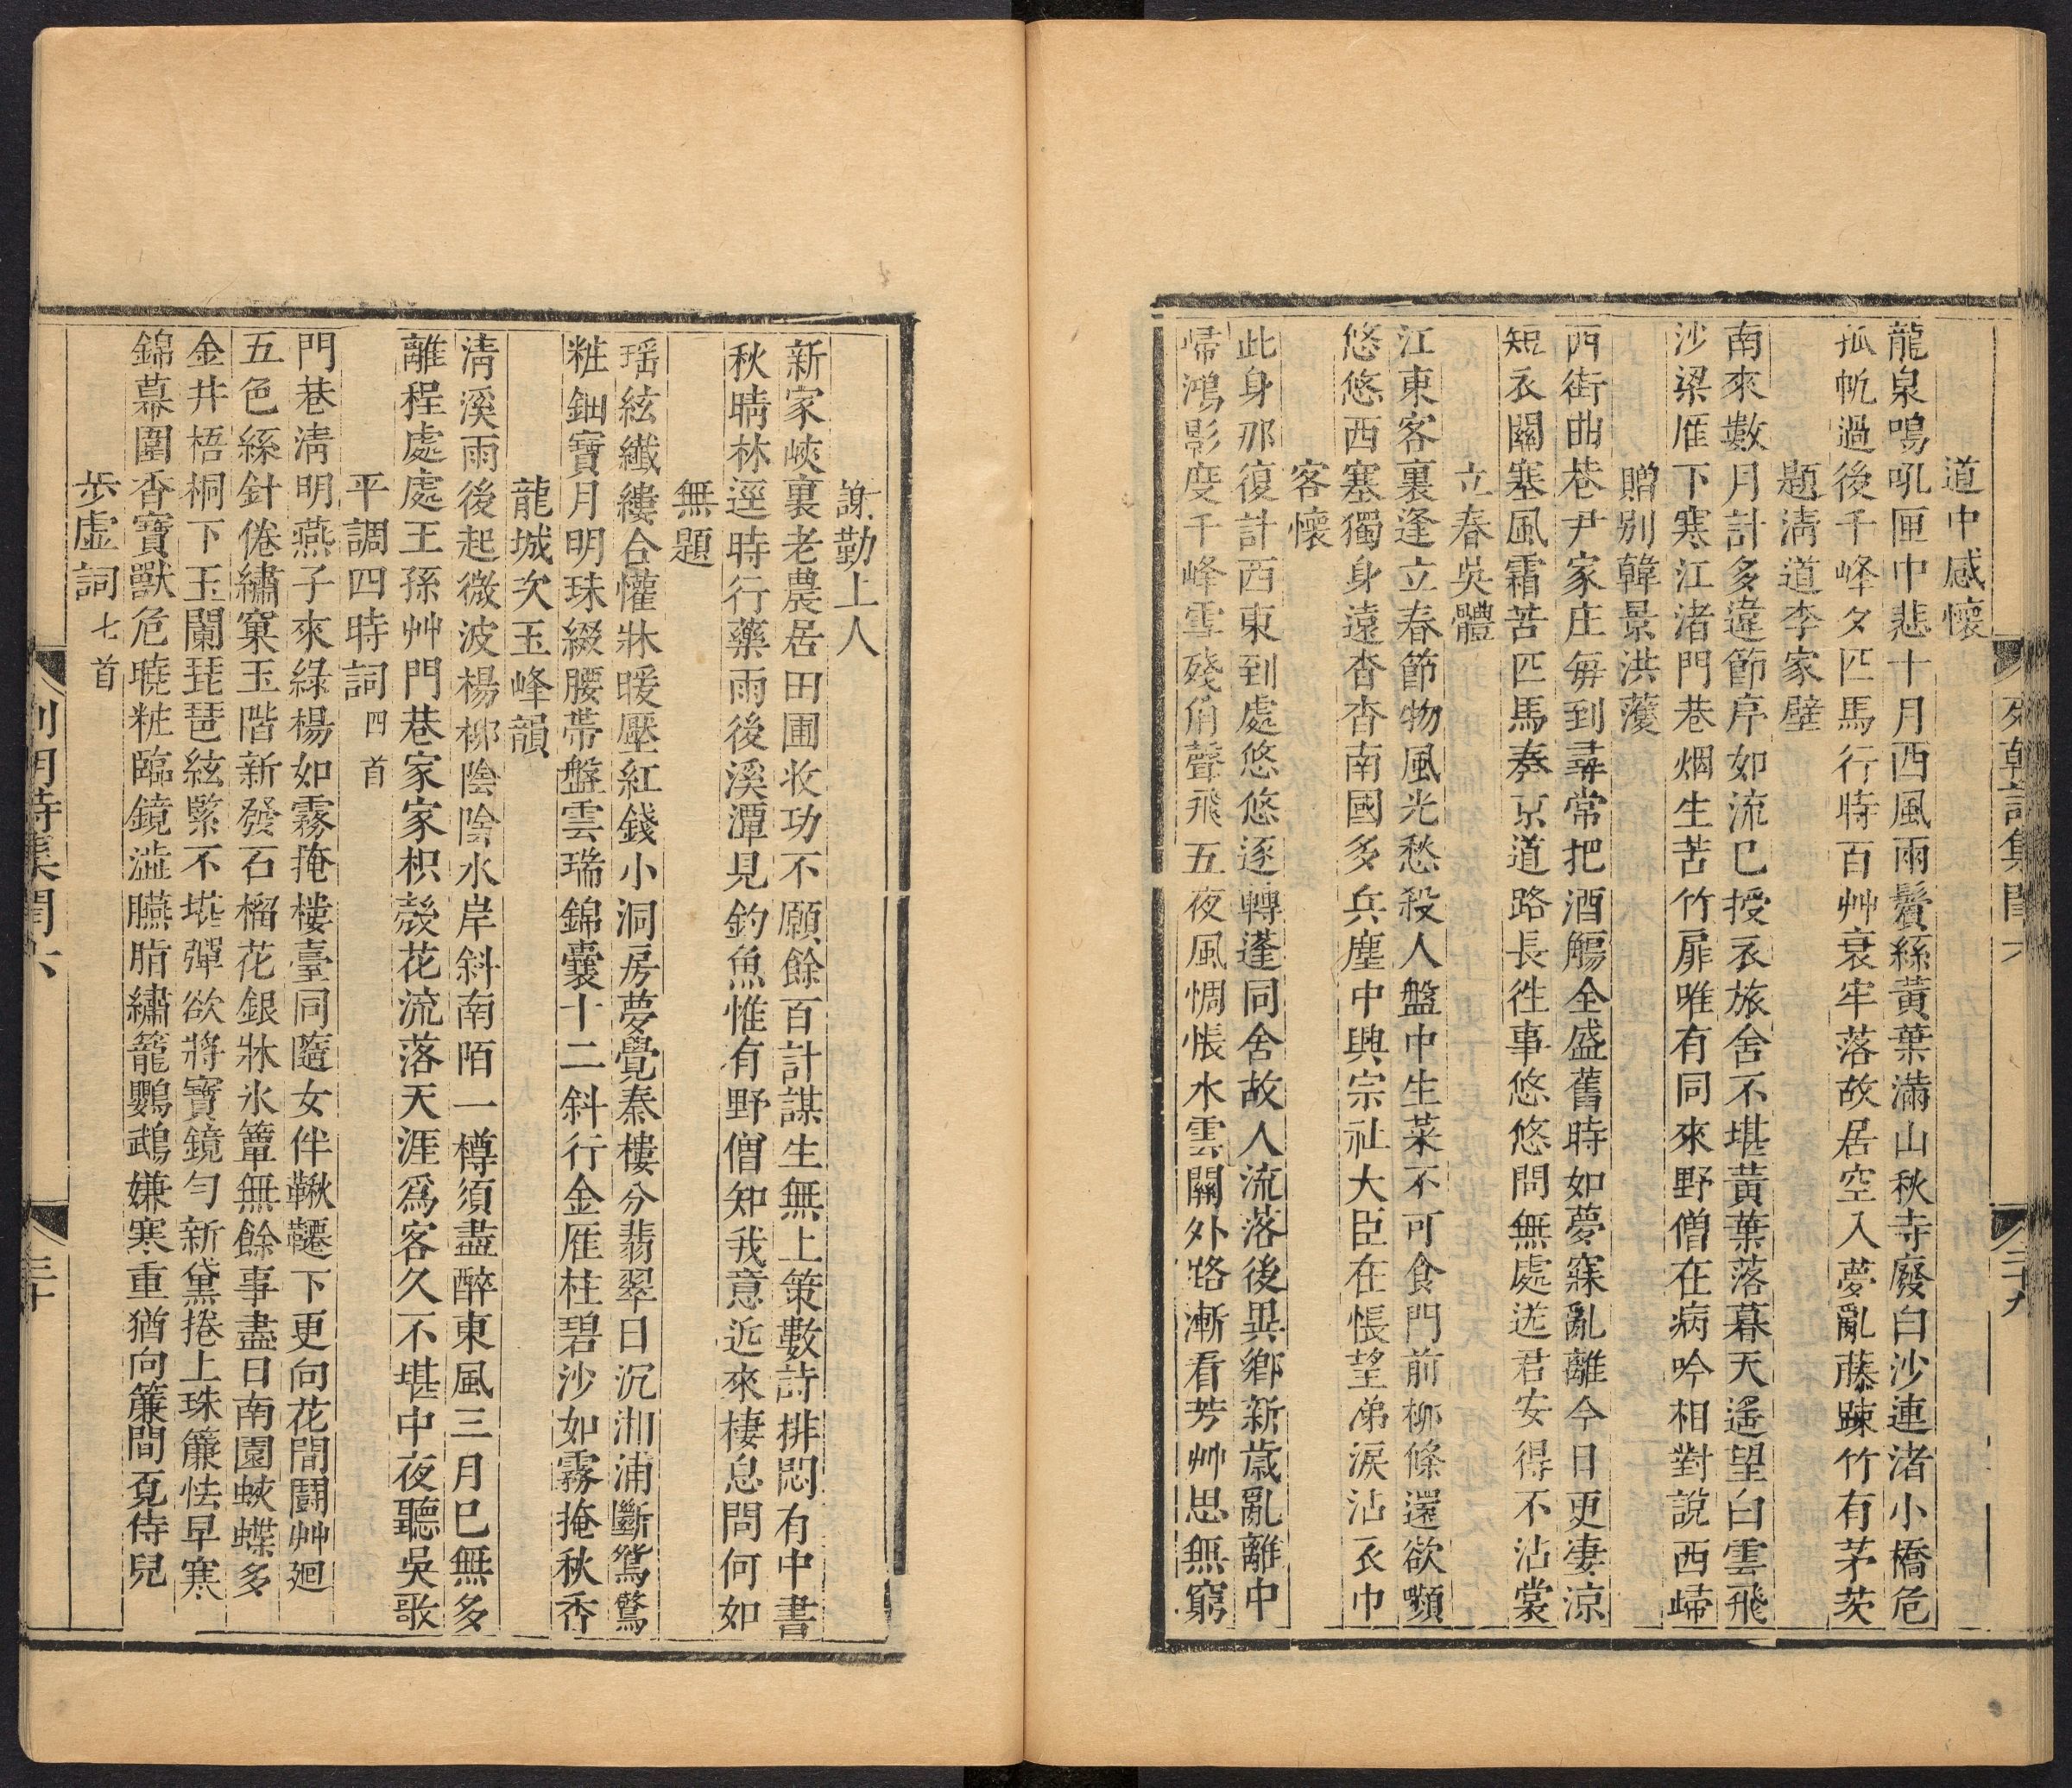 道中感懷
龍泉鳴吼匣中悲十月西風雨鬢絲黃葉滿山秋寺廢白沙連渚小橋危
孤帆過後千峰夕匹馬行時百艸衰牢落故居空入夢亂藤踈竹有茅茨
題淸道李家壁
南來數月計多違節序如流已授衣旅舍不堪黃葉落暮天遙望白雲飛
沙梁雁下寒江渚門巷烟生苦竹扉唯有同來野僧在病吟相對說西歸
贈別韓景洪濩
西街曲巷尹家庄每到尋常把酒觴全盛舊時如夢寐亂離今日更凄涼
短衣關塞風霜苦匹馬秦京道路長徃事悠悠問無處送君安得不沾裳
立春吳體
江東客裏逢立春節物風光愁殺人盤中生菜不可食門前柳條還欲嚬
悠悠西塞獨身遠杳杳南國多兵塵中興宗社大臣在悵望㳽淚沾衣巾
客懷
此身那復計西東到處悠悠逐轉蓬同舍故人流落後異鄉新歲亂離中
歸鴻影度千峰雪殘角聲飛五夜風惆悵水雲關外路漸看芳艸思無窮
列朝詩集閏六
二十九
謝勤上人
新家峽裏老農居田圃收功不願餘百計謀生無上策數詩排悶有中書
秋晴林逕時行藥雨後溪潭見釣魚惟有野僧知我意近來棲息問何如
無題
瑤絃纖縷合懽牀暖壓紅錢小洞房夢覺秦樓分翡翠日沉湘浦斷鴛鴦
粧鈿寶月明珠綴腰帶盤雲瑞錦囊十二斜行金雁柱碧沙如霧掩秋香
龍城次玉峰韻
淸溪雨後起微波楊柳陰陰水岸斜南陌一樽須盡醉東風三月已無多
離程處處王孫艸門巷家家枳殼花流落天涯爲客久不堪中夜聽吳歌
平調四時詞四首
門巷淸明燕子來綠楊如霧掩樓臺同隨女伴鞦韆下更向花間鬪艸廻
五色絲針倦繡窠玉階新發石榴花銀牀氷簟無餘事盡日南園蛺蝶多
金井梧桐下玉闌琵琶絃緊不堪彈欲將寶鏡勻新黛捲上珠簾怯早寒
錦幕圍香寶獸危曉粧臨鏡澁臙脂繡籠鸚鵡嫌寒重猶向簾間覓侍兒
步虛詞七首
列朝詩集閏六
三十